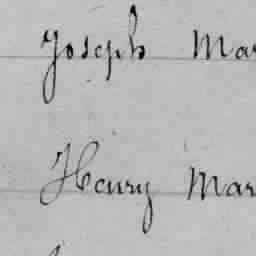 Joseph Mar
Henry Mar